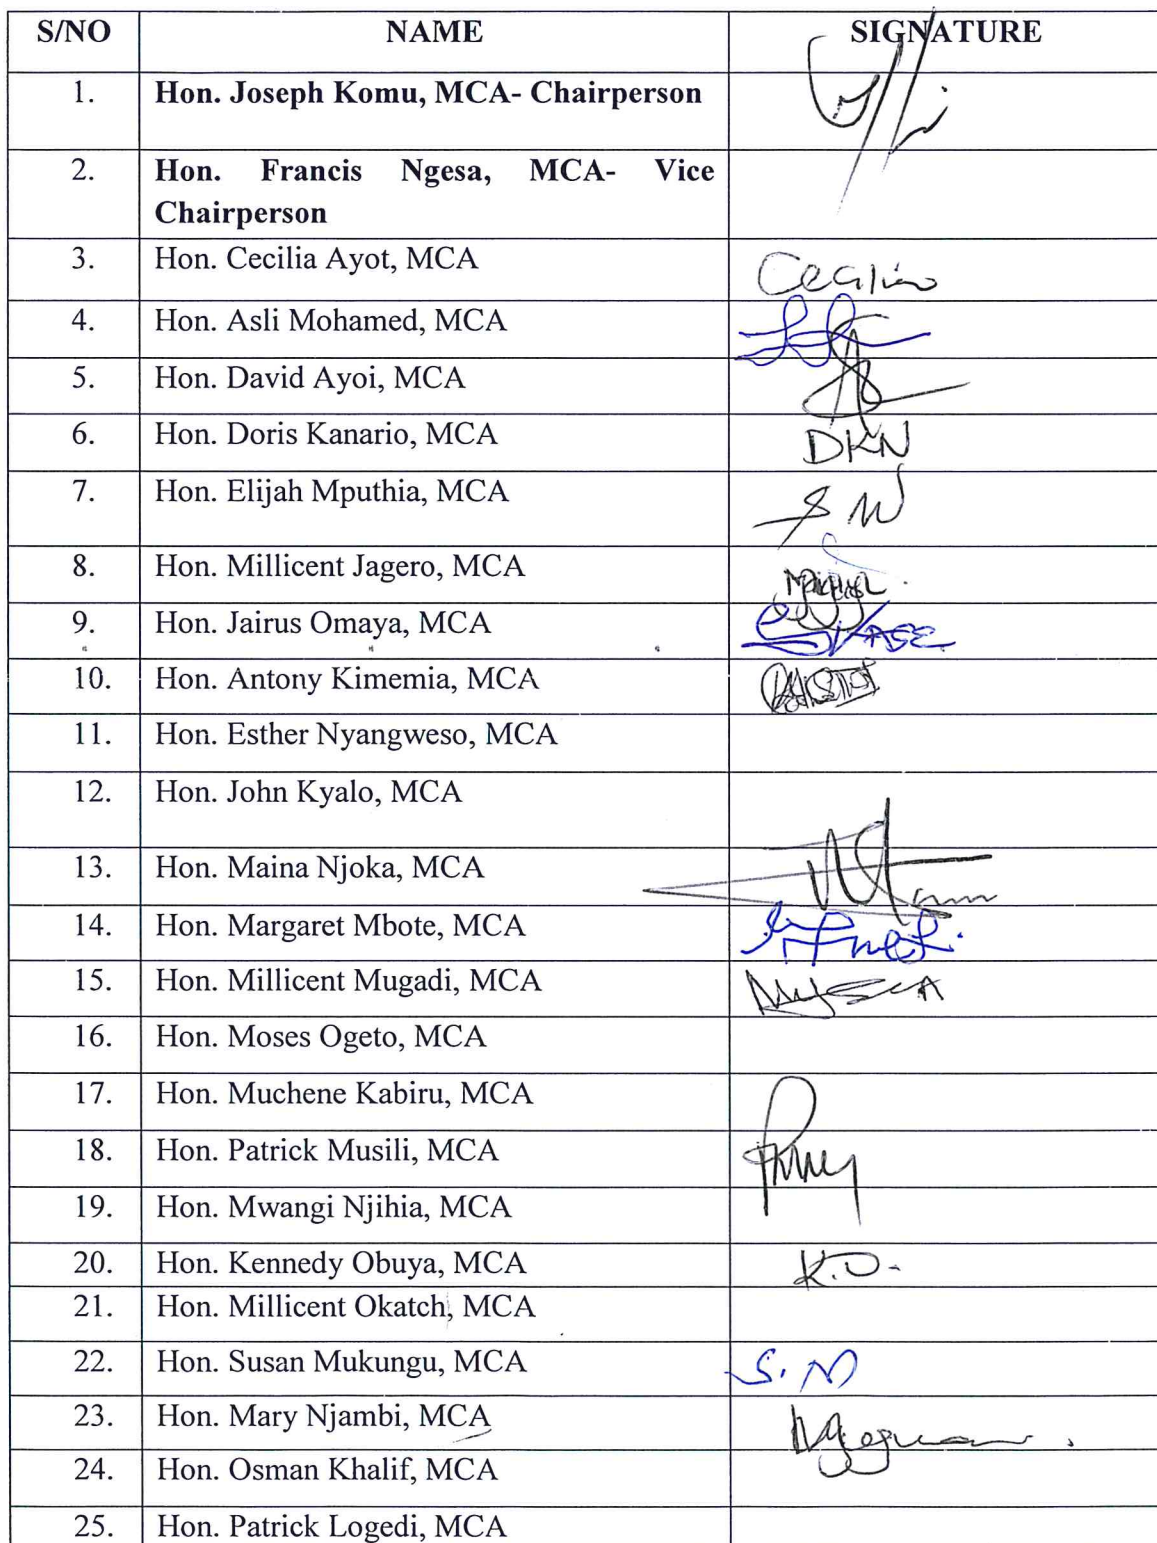 S/NO NAME SIGNATURE
1. Hon. Joseph Komu, MCA- Chairperson
2. Hon. Francis Ngesa, MCA- Vice
Chairperson
3. Hon. Cecilia Ayot, MCA Cecilia
4. Hon. Asli Mohamed, MCA
5. Hon. David Ayoi, MCA
6. Hon. Doris Kanario, MCA DKN
7. Hon. Elijah Mputhia, MCA
8. Hon. Millicent Jagero, MCA
9. Hon. Jairus Omaya, MCA
10. Hon. Antony Kimemia, MCA
11. Hon. Esther Nyangweso, MCA
12. Hon. John Kyalo, MCA
13. Hon. Maina Njoka, MCA
14. Hon. Margaret Mbote, MCA
15. Hon. Millicent Mugadi, MCA
16. Hon. Moses Ogeto, MCA
17. Hon. Muchene Kabiru, MCA
18. Hon. Patrick Musili, MCA
19. Hon. Mwangi Njihia, MCA
20. Hon. Kennedy Obuya, MCA K.O.
21. Hon. Millicent Okatch, MCA
22. Hon. Susan Mukungu, MCA S.M
23. Hon. Mary Njambi, MCA
24. Hon. Osman Khalif, MCA
25. Hon. Patrick Logedi, MCA